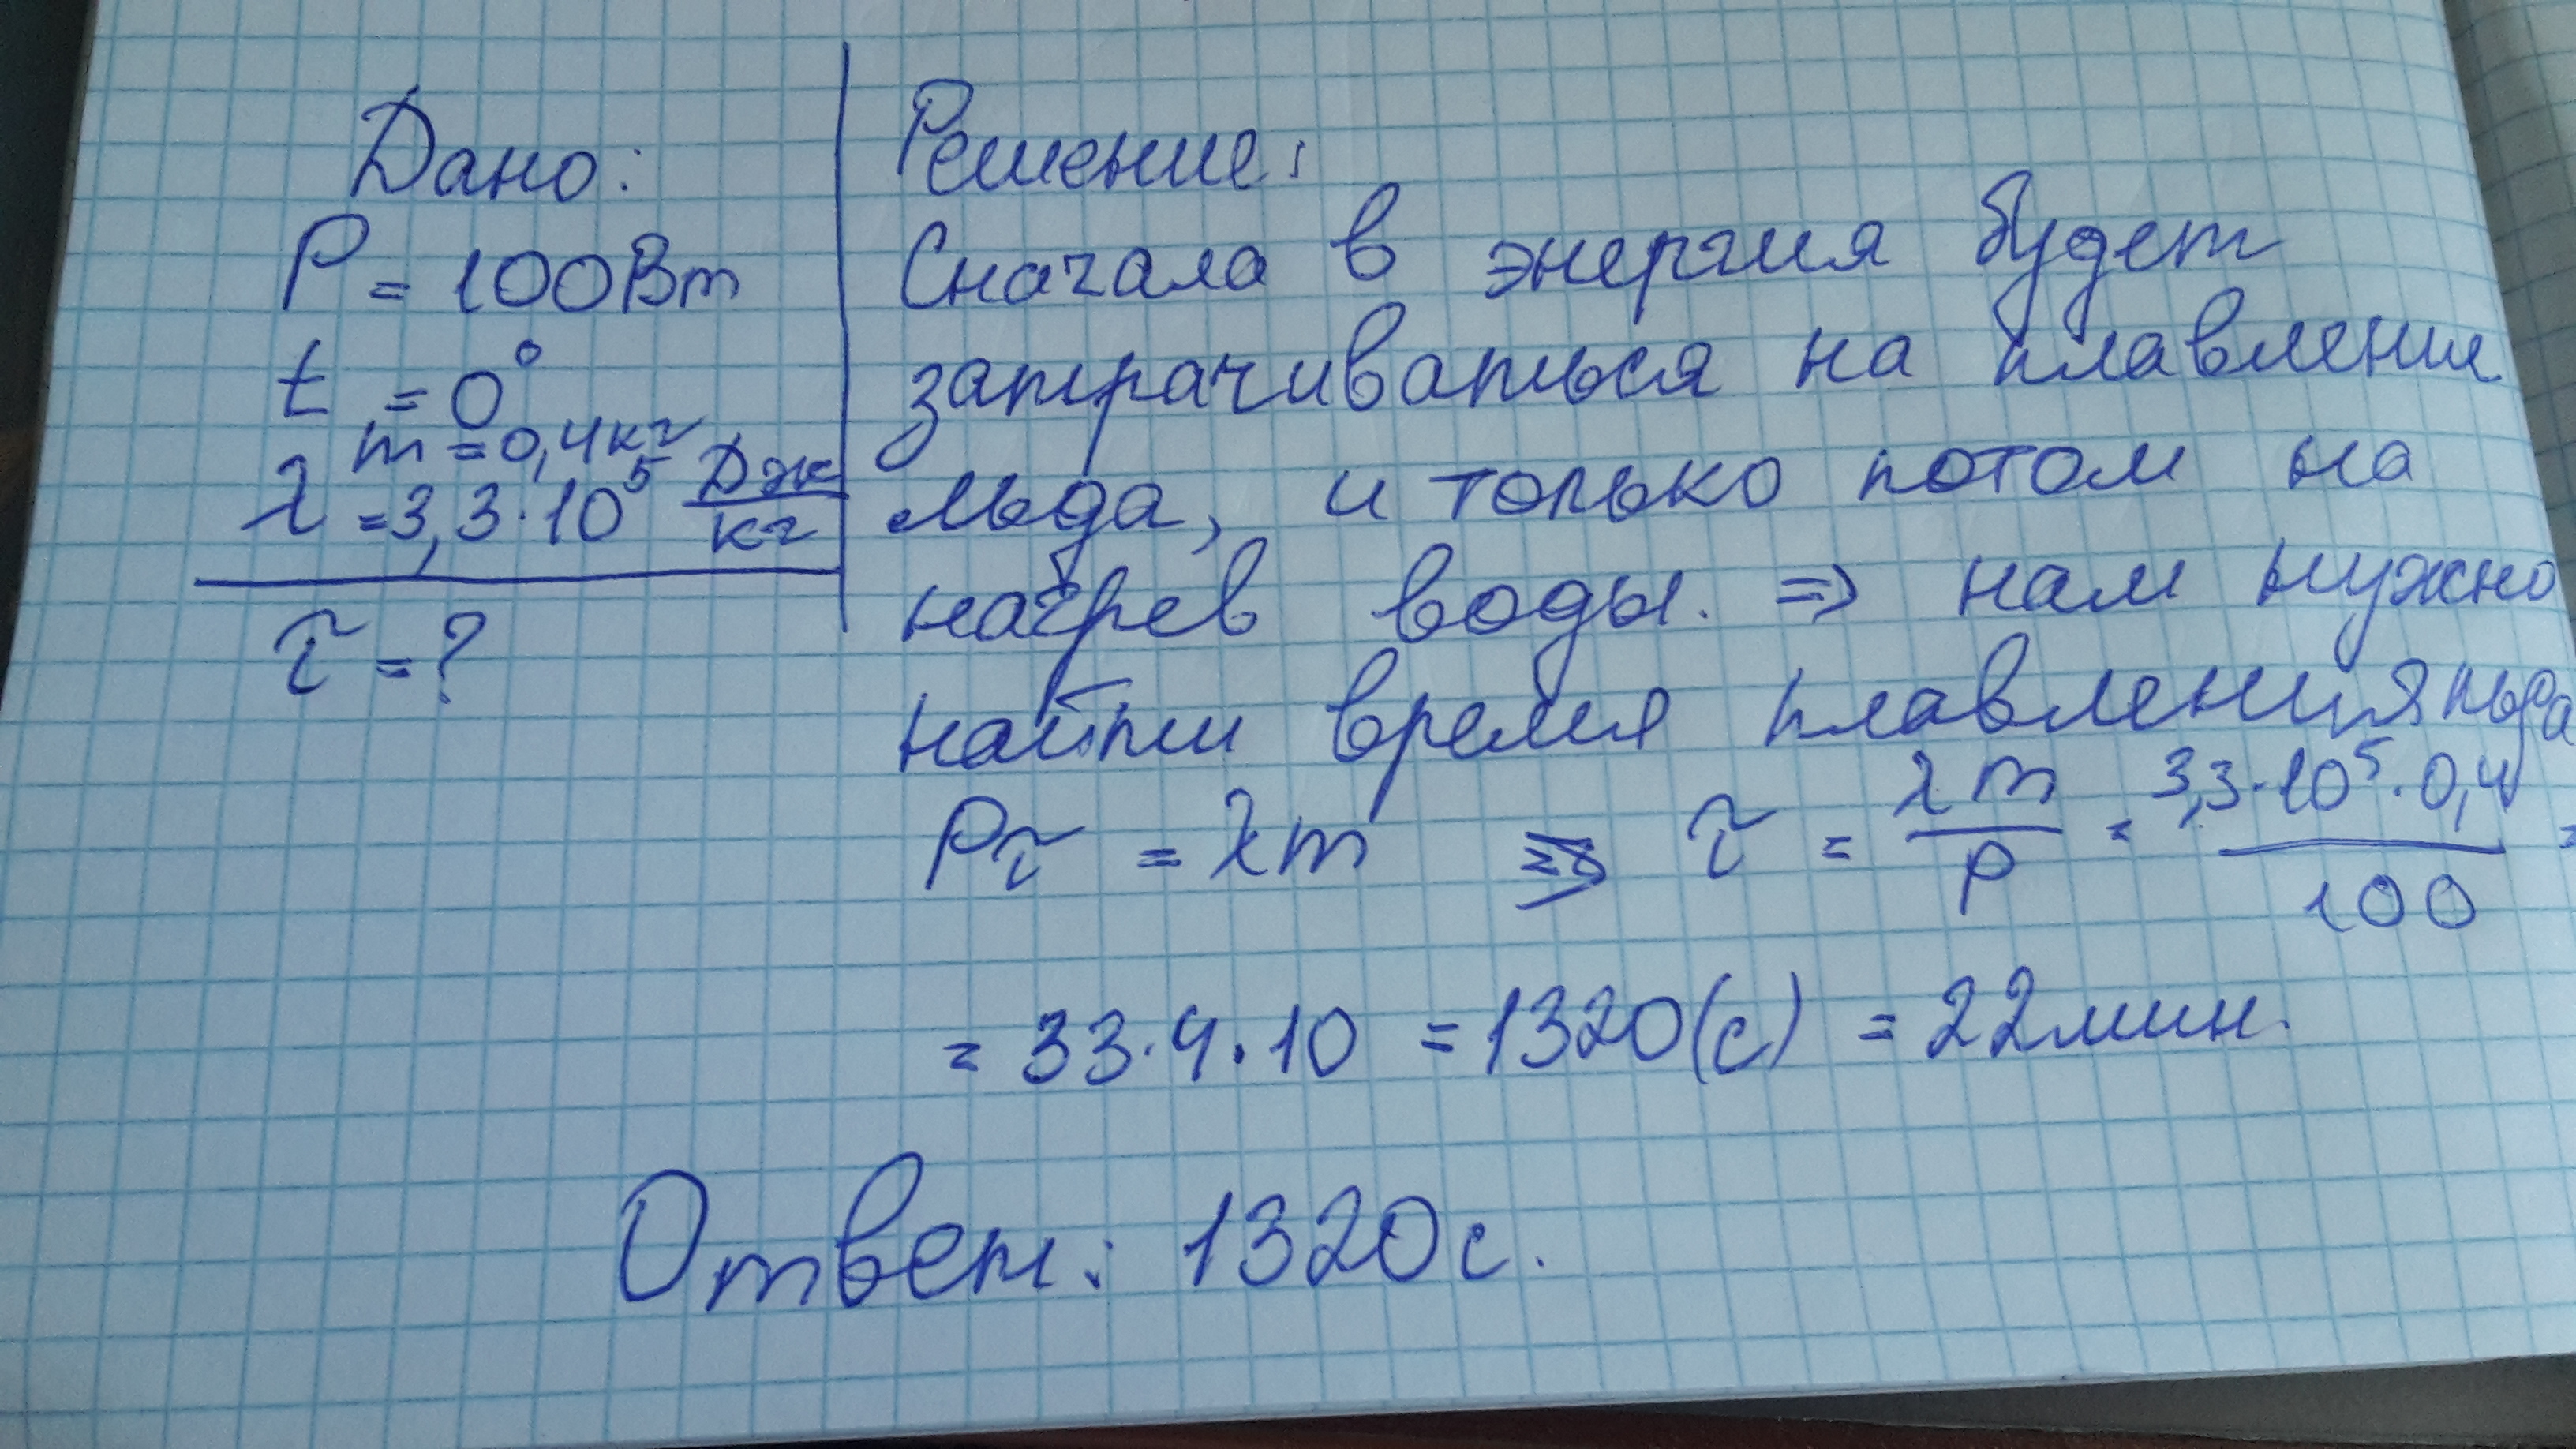 Дано:
P = 100Вт
t = 0°
m = 0,4кг
λ = 3,3·10⁵ Дж/кг
τ = ?
Решение:
Сначала в энергия будет
затрачиваться на плавления
льда, и только потом на
нагрев воды. => нам нужно
найти время плавления льда
Pτ = λm => τ = λm/P = 3,3·10⁵·0,4/100 =
= 33·4·10 = 1320(с) = 22мин.
Ответ: 1320с.